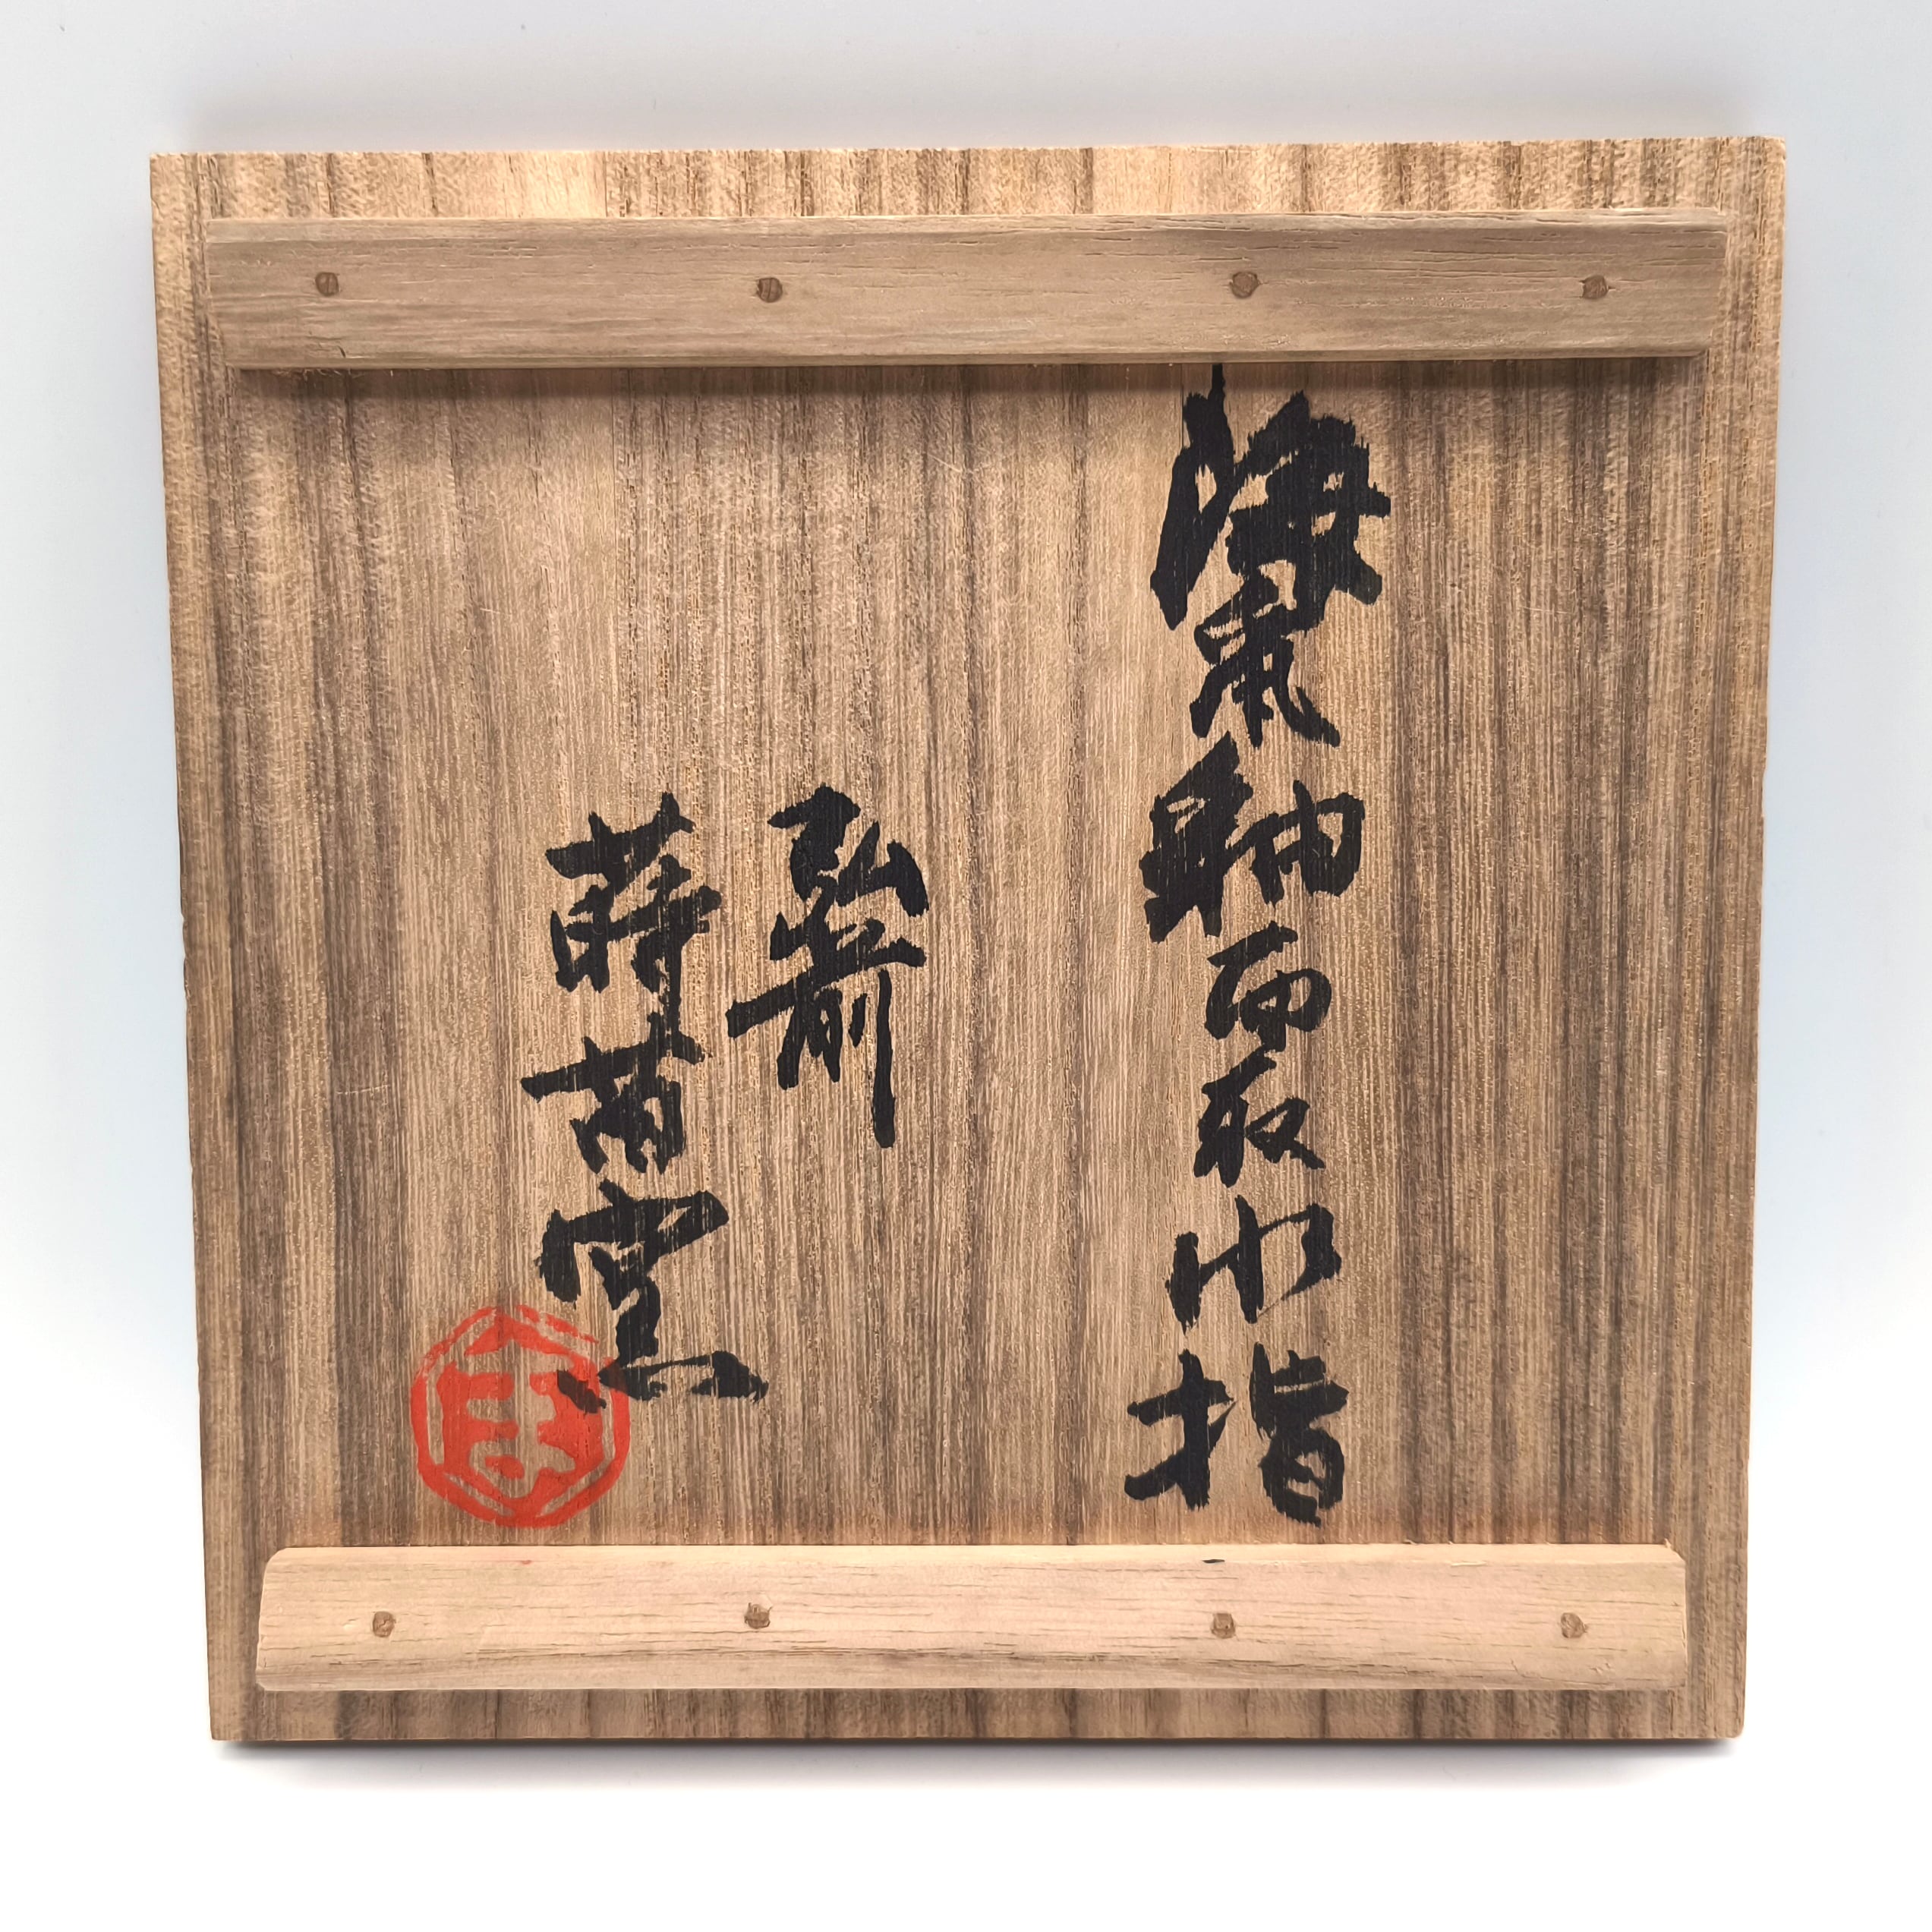 海鼠釉面取水指
弘前
蒔苗窯